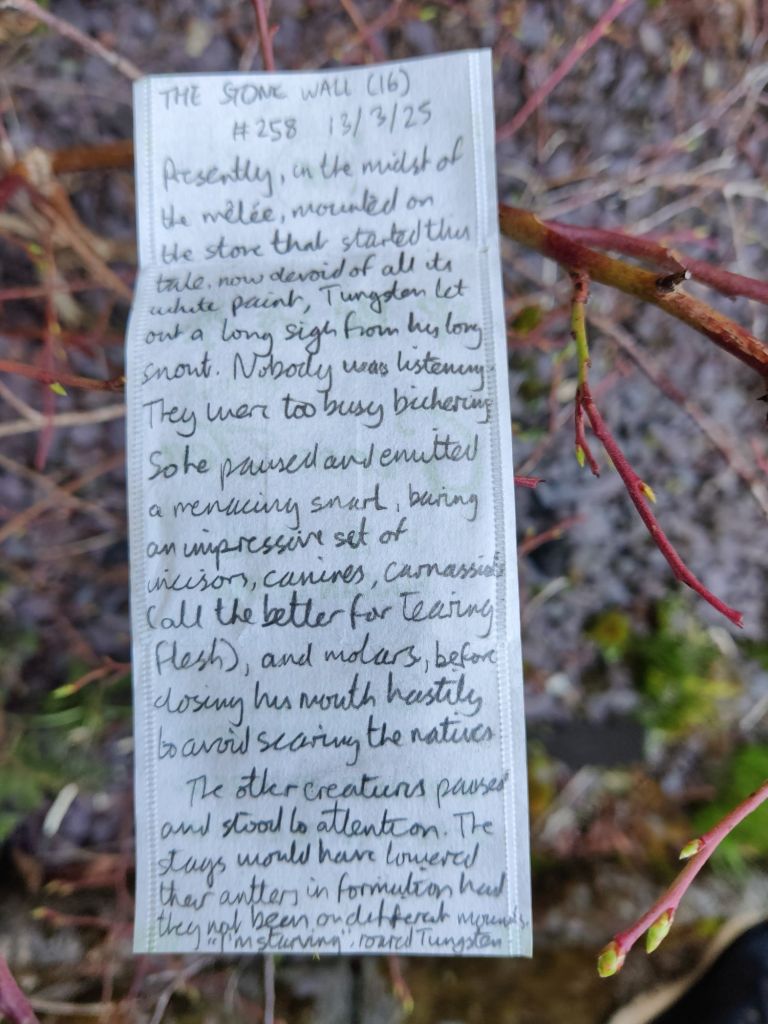 THE STONE WALL (16)
#258 13/3/25
Presently, in the midst of
the mêlée, mounted on
the stone that started this
tale, now devoid of all its
white paint, Tungsten let
out a long sigh from his long
snout. Nobody was listening.
They were too busy bickering
So he paused and emitted
a menacing snarl, baring
an impressive set of
incisors, canines, carnassials
(all the better for tearing
flesh), and molars, before
closing his mouth hastily
to avoid scaring the natives
The other creatures paused
and stood to attention. The
stags would have lowered
their antlers in formation had
they not been on different mounds.
"I'm starving", roared Tungsten